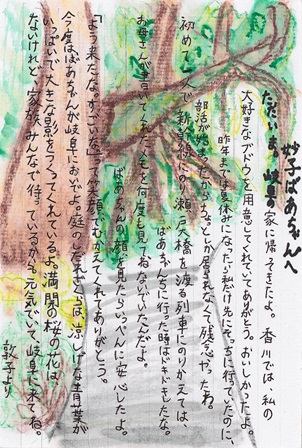 妙子ばあちゃんへ
ただいま。岐阜の家に帰ってきたよ。香川では、私の
大好きなブドウを用意してくれてありがとう。おいしかったよ。
昨年までは夏休みになったら私だけ先にそっちに行ってたのに、
部活が始まったからちょっとしか居れなくて残念やったわ。
初めて一人で新幹線にのり瀬戸大橋を渡る列車にのりかえては、
ばあちゃんちに行った時はドキドキしたな。
お母さんが書いてくれたメモを何度も見ておなかいたんだよ。
ばあちゃんの顔を見たらいっぺんに安心したよ。
「よう来たな。すごいな」って笑顔でむかえてくれてありがとう。
今度はばあちゃんが岐阜においでよ。庭のしだれざくらは、涼しげな青葉が
いっぱいで大きな影をつくってくれているよ。満開の桜の花は
ないけれど、家族みんなで待っているから元気でいて、岐阜に来てね。
敦子より